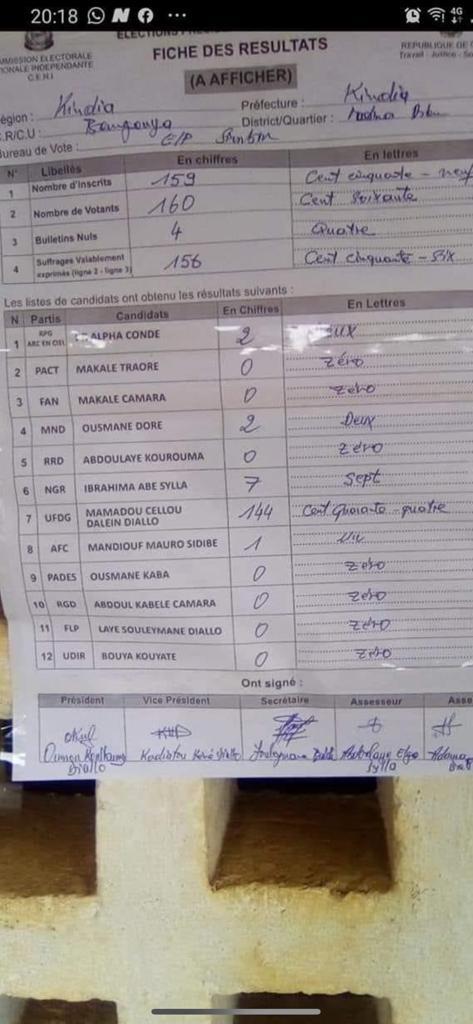 20:18
4G
ELECTIONS
COMMISSION ELECTORALE
NATIONALE INDEPENDANTE
C.E.N.I
FICHE DES RESULTATS
(A AFFICHER)
REPUBLIQUE DE
Travail - Justice - So
Région : Kindia
Préfecture : Kindia
C.R/C.U : Bangouya
District/Quartier :
Bureau de Vote : E/P
N° Libellés En chiffres En lettres
1 Nombre d'Inscrits 159 Cent cinquante - neuf
2 Nombre de Votants 160 Cent Soixante
3 Bulletins Nuls 4 Quatre
4 Suffrages Valablement exprimés (ligne 2 - ligne 3) 156 Cent cinquante - six
Les listes de candidats ont obtenu les résultats suivants :
N Partis Candidats En Chiffres En Lettres
1 RPG ARC EN CIEL ALPHA CONDE 2 eux
2 PACT MAKALE TRAORE 0 Zéro
3 FAN MAKALE CAMARA 0 Zéro
4 MND OUSMANE DORE 2 Deux
5 RRD ABDOULAYE KOUROUMA 0 Zéro
6 NGR IBRAHIMA ABE SYLLA 7 Sept
7 UFDG MAMADOU CELLOU DALEIN DIALLO 144 Cent Quarante - quatre
8 AFC MANDIOUF MAURO SIDIBE 1 Un
9 PADES OUSMANE KABA 0 Zéro
10 RGD ABDOUL KABELE CAMARA 0 Zéro
11 FLP LAYE SOULEYMANE DIALLO 0 Zéro
12 UDIR BOUYA KOUYATE 0 Zéro
Ont signé :
Président Vice Président Secrétaire Assesseur Asse
Diallo Kadiatou Diallo Sylla